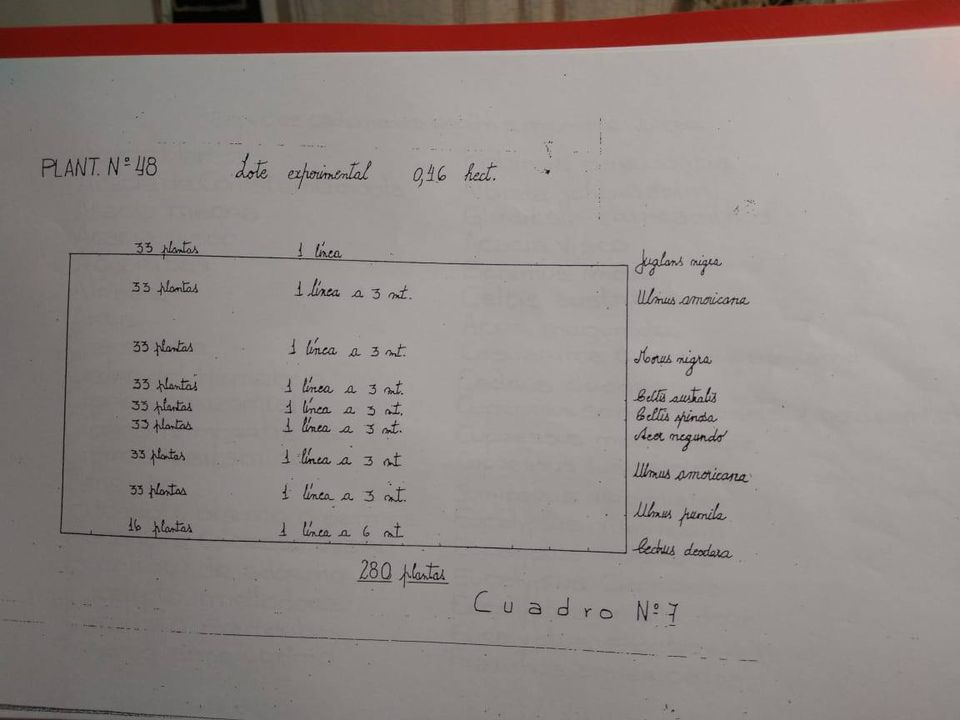 PLANT. Nº 48 Lote experimental 0,46 hect.
33 plantas 1 línea Juglans nigra
33 plantas 1 línea a 3 mt. Ulmus americana
33 plantas 1 línea a 3 mt. Morus nigra
33 plantas 1 línea a 3 mt. Celtis australis
33 plantas 1 línea a 3 mt. Celtis spinosa
33 plantas 1 línea a 3 mt. Acer negundo
33 plantas 1 línea a 3 mt Ulmus americana
33 plantas 1 línea a 3 mt. Ulmus pumila
16 plantas 1 línea a 6 mt Cedrus deodara
280 plantas
Cuadro Nº 7